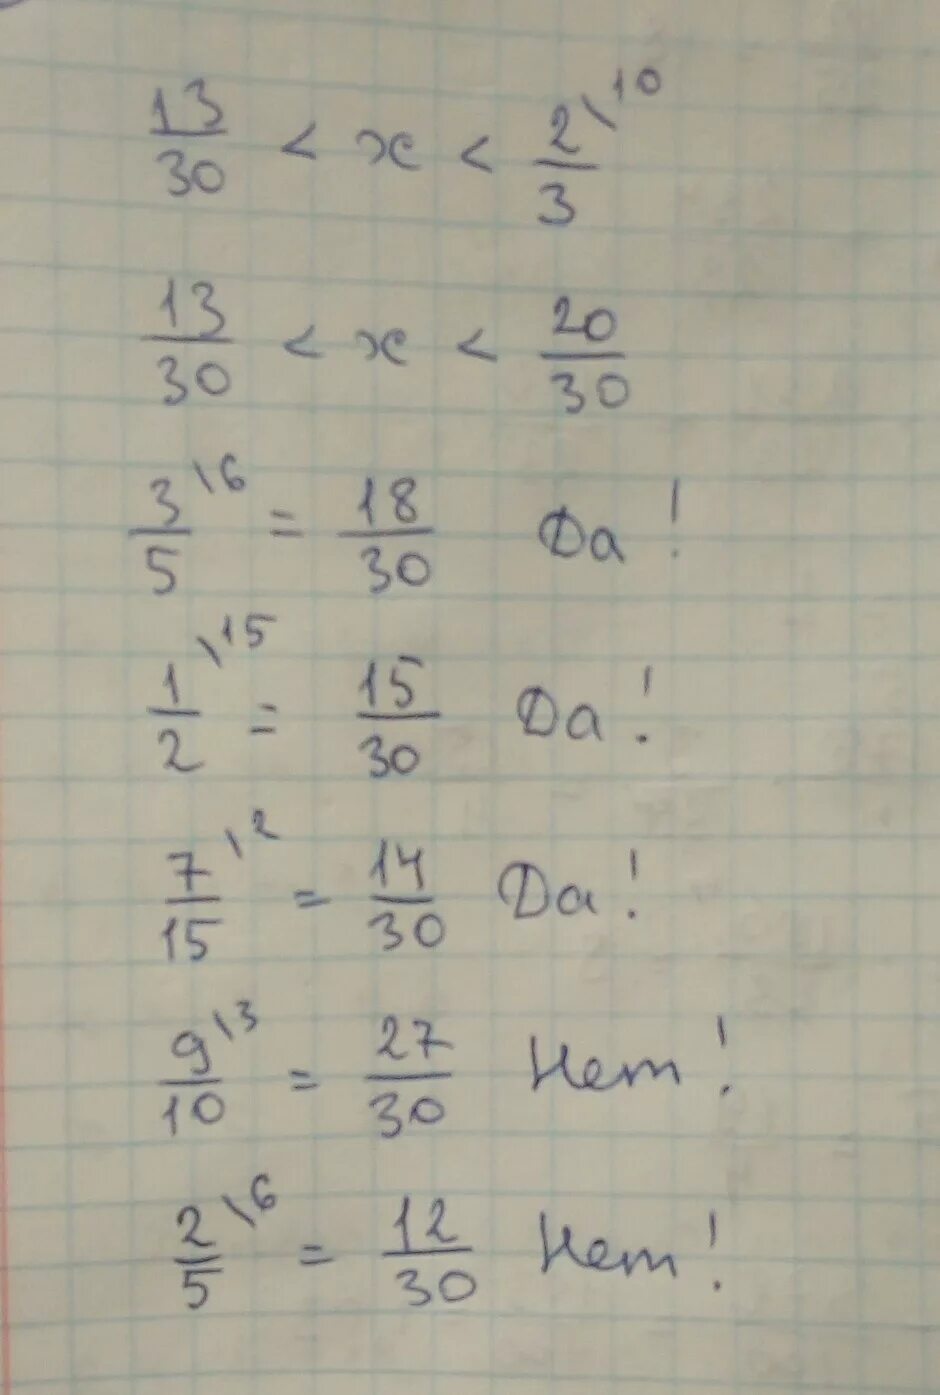 13/30 < x < 2\10/3
13/30 < x < 20/30
3\6/5 = 18/30 Да!
1\15/2 = 15/30 Да!
7\2/15 = 14/30 Да!
9\3/10 = 27/30 Нет!
2\6/5 = 12/30 Нет!